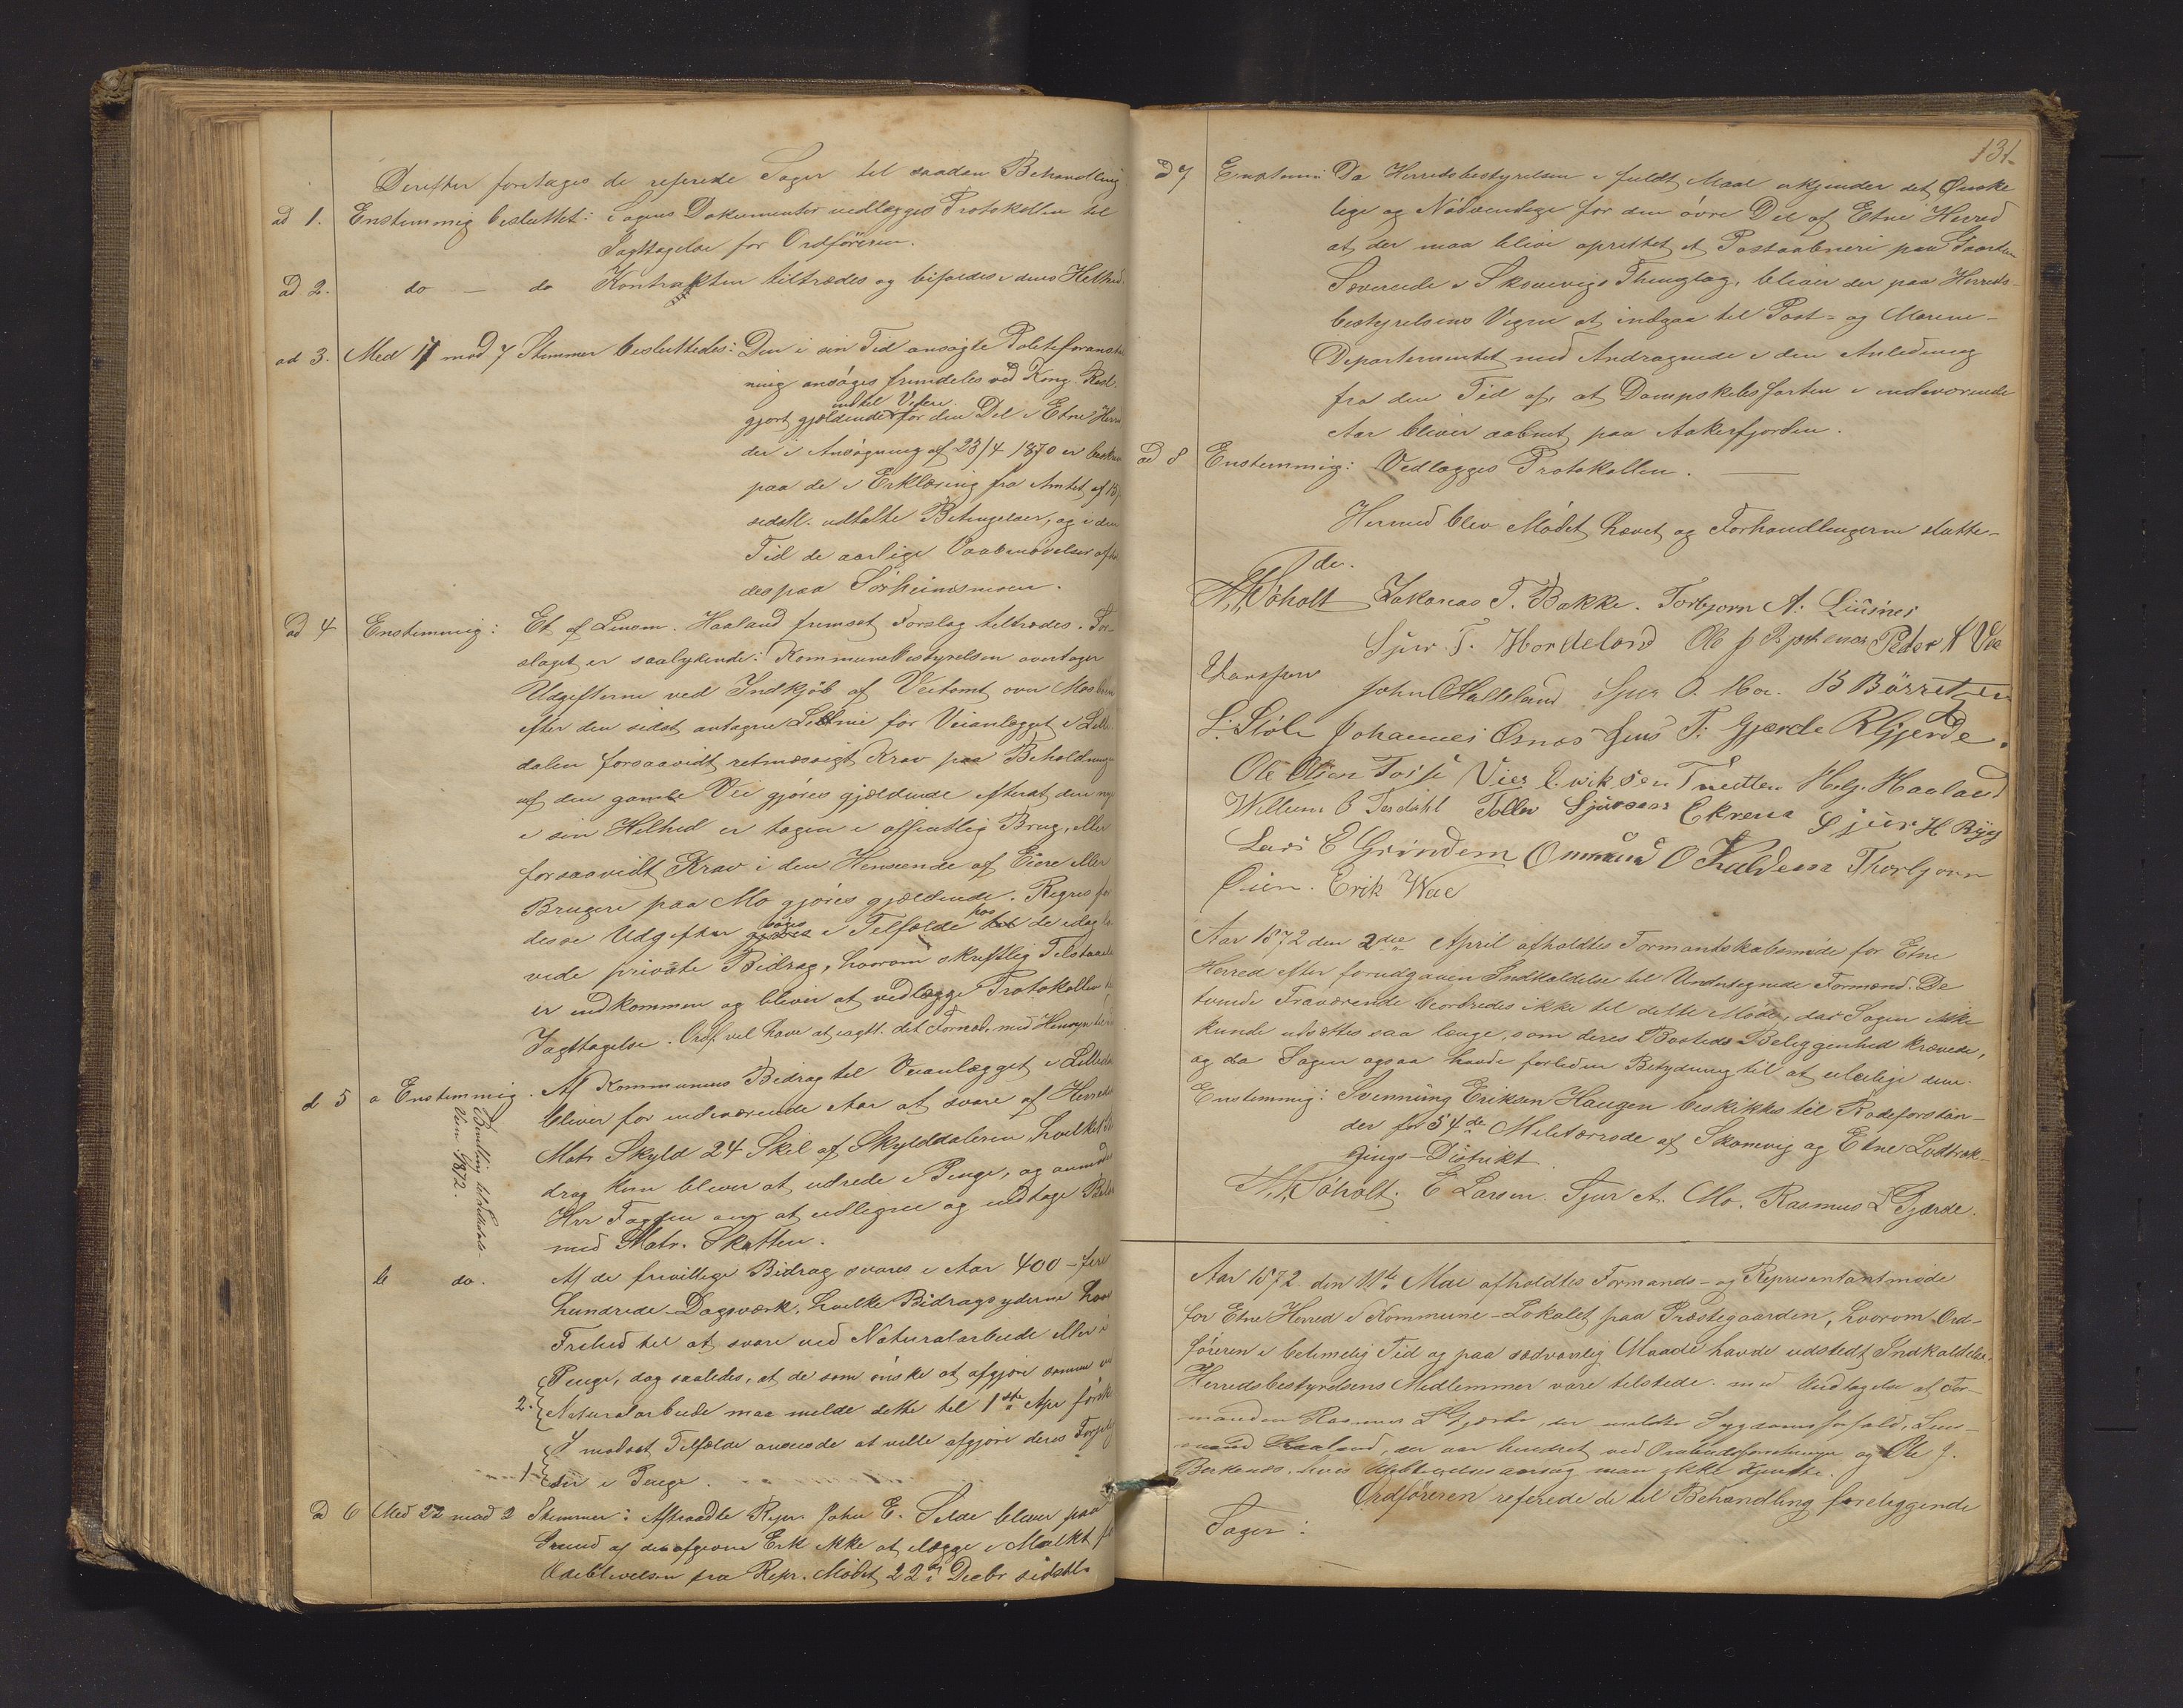 Derefter foretages de refererede Sager til saadan Behandling
ad 1. Enstemmig besluttet: Sagens Dokumenter vedlægges Protokollen til
Iagttagelse for Ordføreren.
ad 2. do — do Kontrakten tiltrædes og bifaldes i dens Helhed.
ad 3. Med 11 mod 7 Stemmer besluttedes: Den i sin Tid ansøgte Politiforanstalt
ning ansøges fremdeles ved Kong. Resl.
indtil Videre
gjort gjældende for den Del i Etne Herred
der i Ansøgning af 23/4 1870 er
paa de i Erklæring fra Amtet af 13/
sidstl. udtalte Betingelser, og i den
Tid de aarlige Vaabenøvelser afhol
des paa Sørheimsmoen.
ad 4 Enstemmig: Et af Lensm. Haaland fremsat Forslag tiltrædes. For-
slaget er saalydende: Kommunebestyrelsen overtager
Udgifterne ved Indkjøb af Veitomt over Mo
efter den sidst antagne Linie for Veianlægget i Lille-
dalen forsaavidt retmæssigt Krav paa Beholdningen
af den gamle Vei gjøres gjældende efterat den nye
i sin Helhed er tagen i offentlig Brug, eller
forsaavidt Krav i den Henseende af Eiere eller
Brugere paa Mo gjøres gjældende. Regres for
søges hos
disse Udgifter gjøres i Tilfælde hos de
vede private Bidrag, hvorom skriftlig Tilstaaelse
er indkommen og bliver at vedlægge Protokollen til
Iagttagelse. Ordf. vil have at iagtt. det Fornød. med Hensyn
d 5 a Enstemmig. Af Kommunens Bidrag til Veianlægget i Lilledalen
bliver for indeværende Aar at svare af Herredets
Matr. Skyld 24 Skil af Skylddaleren, hvilket Bi
drag kun bliver at udrede i Penge, og anmodes
Hrr Fogden om at udligne og indtage Beløbet
med Matr. Skatten.
Veien 1872.
b do. Af de frivillige Bidrag svares i Aar 400 – fire
hundrede – Dagsværk, hvilke Bidragsyderne have
Frihed til at svare ved Naturalarbeide eller i
Penge, dog saaledes, at de som ønske at afgjøre samme ved
2. Naturalarbeide maa melde dette til 1ste Apr
I modsat Tilfælde ansees de at ville afgjøre deres Forplig
1. delse i Penge.
ad 6 Med 22 mod 2 Stemmer: Aftraadte Repr. John E. Silde bliver paa
Grund af den afgivne Erkl. ikke at ilægge i Mulkt for
Udeblivelsen fra Repr. Mødet 22de Decbr sidstl.
131.
ad 7 Enstemm: Da Herredsbestyrelsen i fuldt Maal erkjender det Ønske
lige og Nødvendige for den øvre Del af Etne Herred
at der maa blive oprettet et Postaabneri paa Gaarden
Sæverede i Skonevigs Thinglag, bliver der paa Herreds-
bestyrelsens Vegne at indgaa til Post- og Marine-
Departementet med Andragende i den Anledning
fra den Tid af, at Dampskibsfarten i indeværende
Aar bliver aabnet paa Aakerfjorden.
ad 8 Enstemmig: Vedlægges Protokollen.
Hermed blev Mødet hævet og Forhandlingerne slutte-
de.
N. Søholt Zakarias T. Bakke. Torbjørn A.
Sjur T. Hordeland Ole J Peder N Vie
John Halleland Sjur O. Mo. B Børretzen
L. Støle Johannes Osnes Jens T. Gjerde R Gjerde.
Ole Olsen Tosse Vier Eriksen Tvedten H. Haaland
Willum O Tesdahl Tollev Sjursen Ekrena Sjur H Ryg
Lars E Grindem Ommund O Kaldem Thorbjørn
Øien. Erik Wae
Aar 1872 den 2den April afholdtes Formandskabsmøde for Etne
Herred efter forudgaaen Indkaldelse til Undertegnede Formænd. De
tvende Fraværende beordredes ikke til dette Møde, da Sagen ikke
kunde udsættes saa længe, som deres Bosteds Beliggenhed krævede,
og da Sagen ogsaa havde forliden Betydning til at uleilige dem.
Enstemmig: Svenning Eriksen Haugen beskikkes til Rodeforstan-
der for 54de Militærrode af Skonevig og Etne Lodtræk-
nings-Distrikt
N. Søholt. E Larsen. Sjur A. Mo. Rasmus L Gjærde.
Aar 1872 den 11te Mai afholdtes Formands- og Representantmøde
for Etne Herred i Kommune-Lokalet paa Præstegaarden, hvorom Ord-
føreren i betimelig Tid og paa sædvanlig Maade havde udstedt Indkaldelse.
Herredsbestyrelsens Medlemmer vare tilstede med Undtagelse af For-
manden Rasmus L Gjærde, der meldte Sygdomsforfald, Lens-
mand Haaland, der var hindret ved Ombudsforretninger og Ole J.
hvis Udeblivelsesaarsag man ikke kjendte.
Ordføreren refererede de til Behandling foreliggende
Sager: